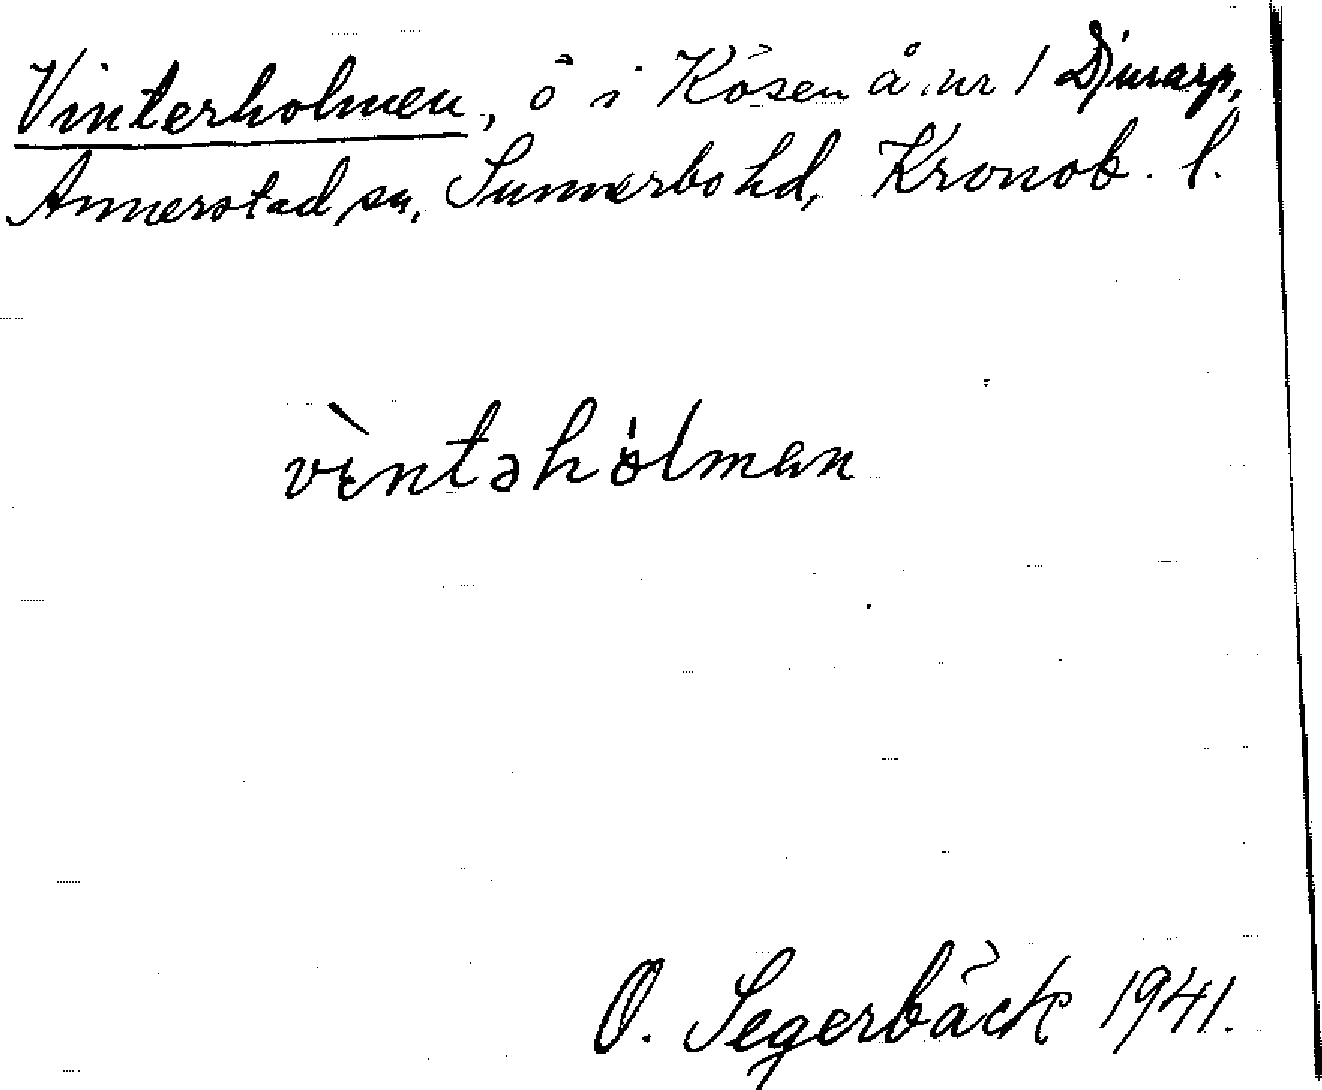 Vinterholmen, ö i Kösen å nr 1 Djurarp,
Annerstad sn, Sunnerbo hd, Kronob. l.
vìntəhólmen
O. Segerbäck 1941.